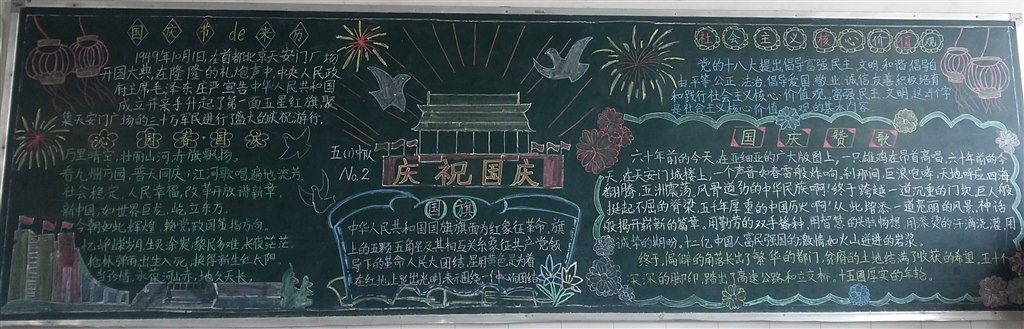 国庆节de来历
1949年10月1日,在首都北京天安门广场
开国大典在隆隆的礼炮声中,中央人民政
府主席毛泽东庄严宣告中华人民共和国
成立并亲手升起了第一面五星红旗.聚
集天安门广场的三十万军民进行了盛大的庆祝游行.
国春·国庆
万里晴空,壮丽山河赤旗飘扬.
看九州方圆,普天同庆;江河歌唱遍地流芳
社会稳定,人民幸福,改革开放谱新章.
新中国,如世界巨龙,屹立东方.
今朝如此辉煌
忆峥嵘岁月
黎民多难,长夜茫茫.
枪林弹雨出生入死,换得新生红太阳
当珍惜,永葆河山赤,地久天长.
五(1)中队
No.2
庆祝国庆
国旗
中华人民共和国国旗旗面为红象征革命,旗
上的五颗五角星及其相互关系象征共产党领
导下的革命人民大团结,星用黄色是为着
在红地上显出光明
社会主义核心价值观
党的十八大提出倡导富强民主,文明,和谐,倡导自
由平等公正,法治,倡导爱国,敬业,诚信,友善积极培育
和践行社会主义核心价值观,富强民主,文明
是社会主义核心价值观的基本内容
国庆赞歌
六十年前的今天,在亚细亚的广大版图上,一只雄鸡在昂首高唱,六十年前的今
天,在天安门城楼上,一个声音如春雷般炸响,刹那间,巨浪咆哮,天地呼应,四海
翻腾,五洲震荡,风骨遒劲的中华民族啊!终于跨越一道沉重的门坎,巨人般
挺起不屈的脊梁,五千年厚重的中国历史啊!从此增添一道亮丽的风景,神话
般揭开崭新的篇章,用勤劳的双手播种,用智慧的头脑畅想,用滚烫的汗滴浇灌,用
诚挚的期盼,十二亿中国人富民强国的激情如火山迸进的岩浆.
终于,偏僻的角落长出了繁华的都门,贫瘠的土地结满了收获的希望,五十个
深深的脚印,踏出了高速公路和立交桥,十五圈厚实的年轮.